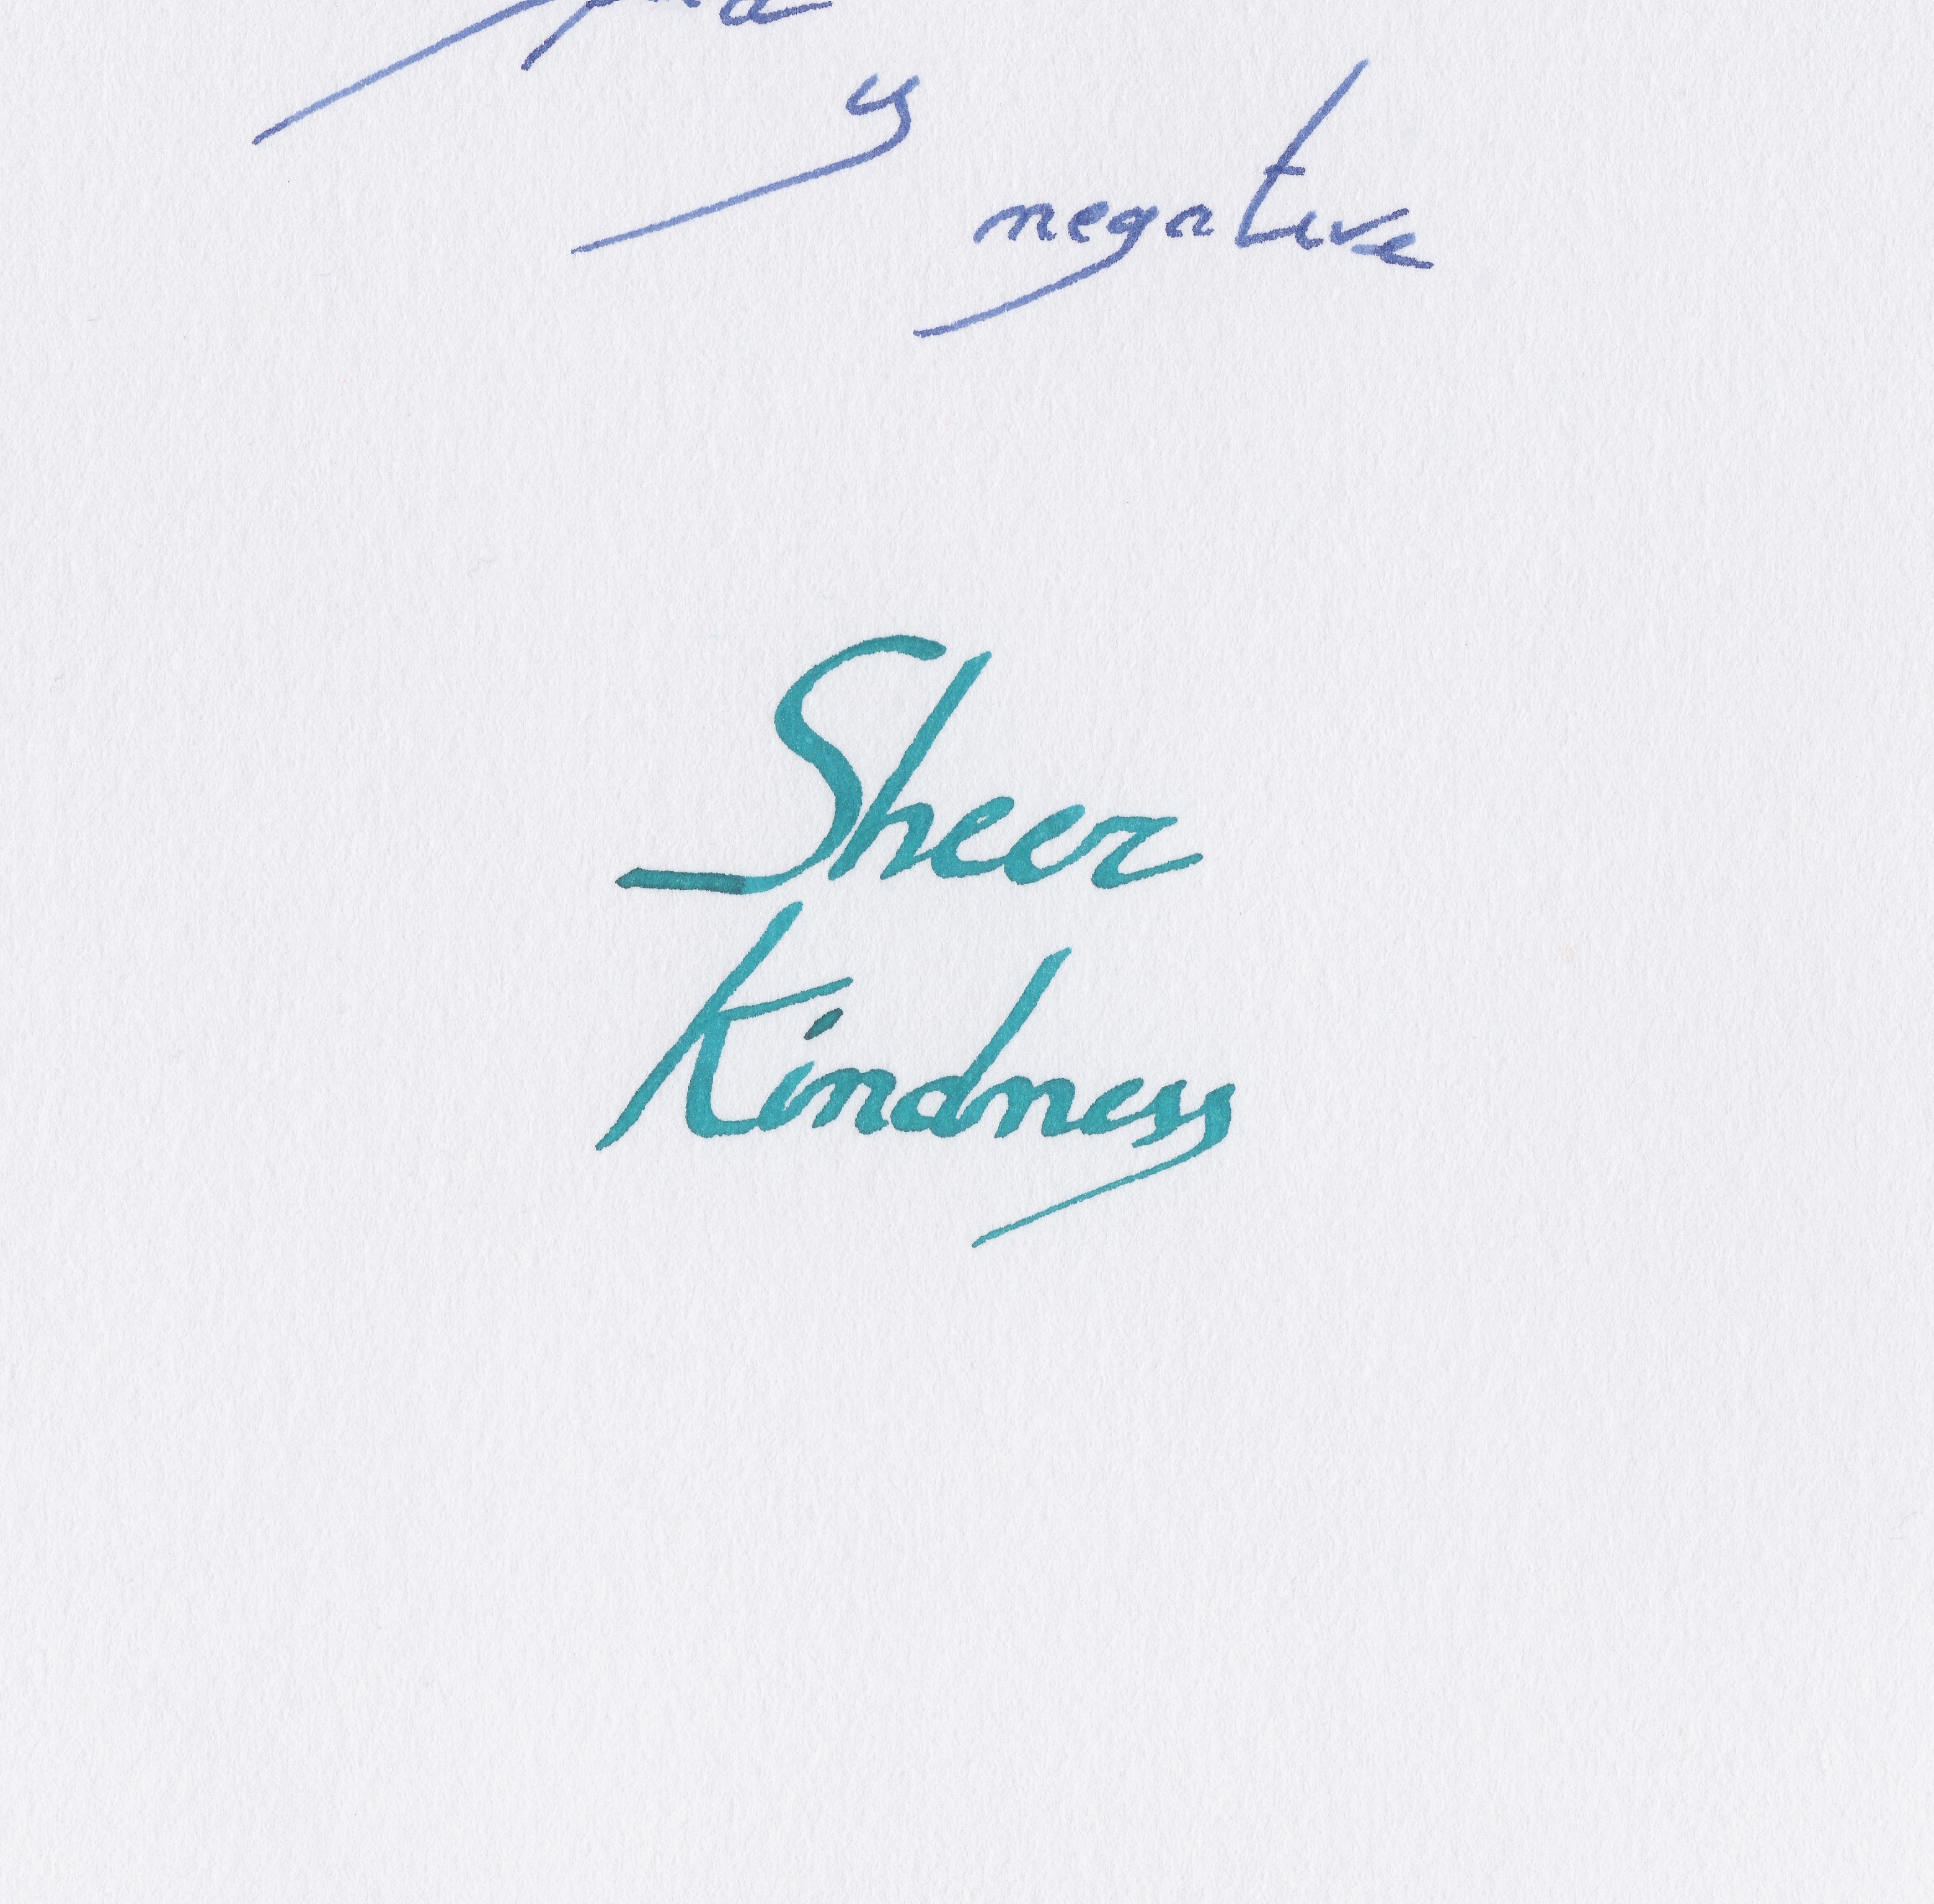 is
negative
Sheer
Kindness